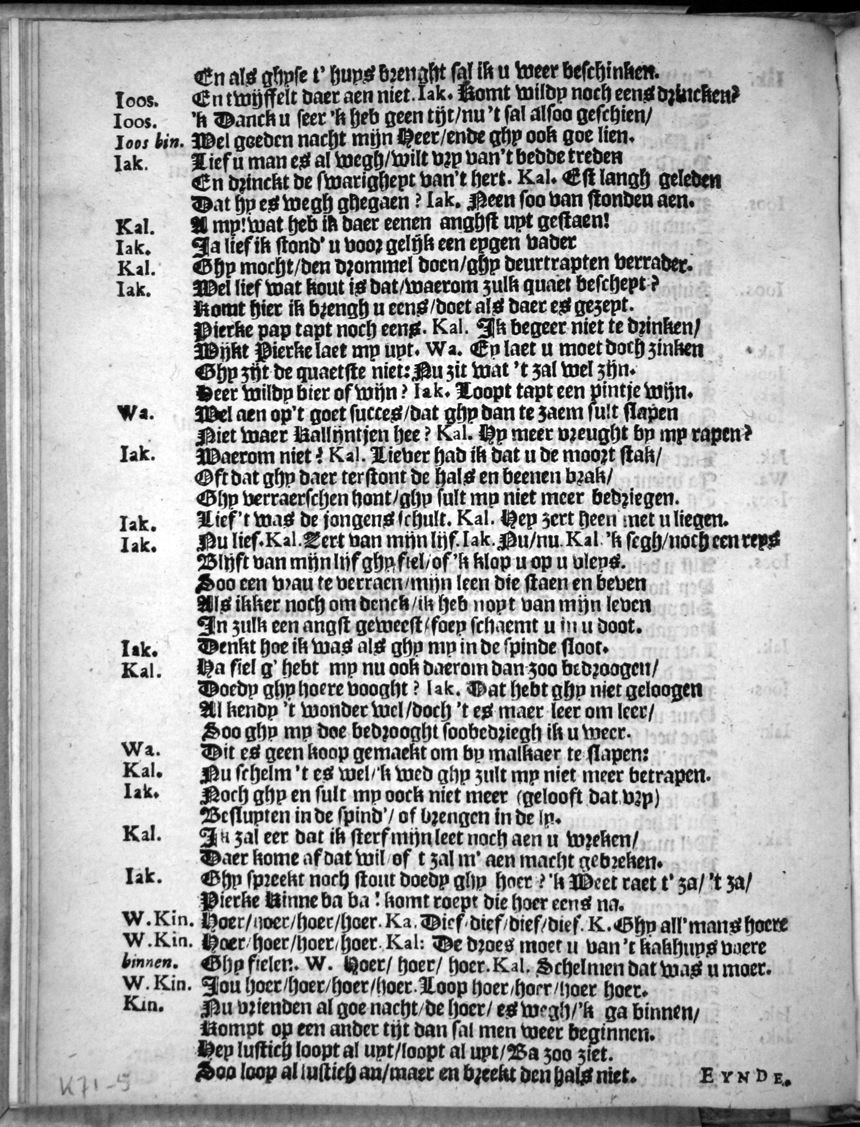 En als ghyse t' huys brenght sal ik u weer beschinken.
Ioos. En twyffelt daer aen niet. Iak. Komt wildy noch eens drincken?
Ioos. 'k Danck u seer 'k heb geen tijt/nu 't sal alsoo geschien/
Ioos bin. Wel goeden nacht mijn Heer/ende ghy ook goe lien.
Iak. Lief u man es al wegh/wilt vry van't bedde treden
En drinckt de swarigheyt van't hert. Kal. Est langh geleden
Dat hy es wegh ghegaen? Iak. Neen soo van stonden aen.
Kal. A my! wat heb ik daer eenen anghst uyt gestaen!
Iak. Ja lief ik stond' u voor gelijk een eygen vader
Kal. Ghy mocht/den drommel doen/ghy deurtrapten verrader.
Iak. Wel lief wat kout is dat/waerom zulk quaet bescheyt?
Komt hier ik brengh u eens/doet als daer es gezeyt.
Pierke pap tapt noch eens. Kal. Ik begeer niet te drinken/
Wijkt Pierke laet my uyt. Wa. Ey laet u moet doch zinken
Ghy zijt de quaetste niet: Nu zit wat 't zal wel zijn.
Heer wildy bier of wijn? Iak. Loopt tapt een pintje wijn.
Wa. Wel aen op't goet succes/dat ghy dan te zaem sult slapen
Niet waer Kallijntjen hee? Kal. Hy meer vreught by my rapen?
Iak. Waerom niet? Kal. Liever had ik dat u de moort stak/
Oft dat ghy daer terstont de hals en beenen brak/
Ghy verraerschen hont/ghy sult my niet meer bedriegen.
Iak. Lief 't was de jongens schult. Kal. Hey zert heen met u liegen.
Iak. Nu lief. Kal. Zert van mijn lijf. Iak. Nu/nu. Kal. 'k segh/noch een reys
Blijft van mijn lijf ghy fiel/of 'k klop u op u vleys.
Soo een vrau te verraen/mijn leen die staen en beven
Als ikker noch om denck/ik heb noyt van mijn leven
In zulk een angst geweest/foey schaemt u in u doot.
Iak. Denkt hoe ik was als ghy my in de spinde sloot.
Kal. Ha fiel g' hebt my nu ook daerom dan zoo bedroogen/
Doedy ghy hoere vooght? Iak. Dat hebt ghy niet geloogen
Al kendy 't wonder wel/doch 't es maer leer om leer/
Soo ghy my doe bedrooght soo bedriegh ik u weer.
Wa. Dit es geen koop gemaekt om by malkaer te slapen:
Kal. Nu schelm 't es wel/'k wed ghy zult my niet meer betrapen.
Iak. Noch ghy en sult my oock niet meer (gelooft dat vry)
Besluyten in de spind'/ of brengen in de ly.
Kal. Ik zal eer dat ik sterf mijn leet noch aen u wreken/
Daer kome af dat wil/of t zal m' aen macht gebreken.
Iak. Ghy spreekt noch stout doedy ghy hoer? 'k Weet raet t' za/ 't za/
Pierke Kinne ba ba! komt roept die hoer eens na.
W. Kin. Hoer/hoer/hoer/hoer. Ka. Dief/dief/dief/dief. K. Ghy all' mans hoere
W. Kin. Hoer/hoer/hoer/hoer. Kal: De droes moet u van't kakhuys voere
binnen. Ghy fielen. W. Hoer/ hoer/ hoer. Kal. Schelmen dat was u moer.
W. Kin. Jou hoer/hoer/hoer/hoer. Loop hoer/hoer/hoer hoer.
Kin. Nu vrienden al goe nacht/de hoer/ es wegh/'k ga binnen/
Kompt op een ander tijt dan sal men weer beginnen.
Hey lustich loopt al uyt/loopt al uyt/Ba zoo ziet.
Soo loop al lustich an/maer en breekt den hals niet. EYNDE.
K71-5